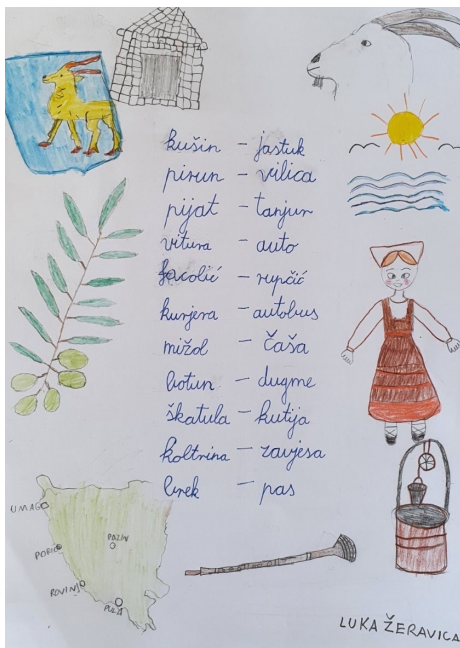 kušin – jastuk
pirun – vilica
pijat – tanjur
vitura – auto
facolić – rupčić
kurjera – autobus
mižol – čaša
botun – dugme
škatula – kutija
koltrina – zavjesa
brek – pas
UMAG
POREČ
PAZIN
ROVINJ
PULA
LUKA ŽERAVICA